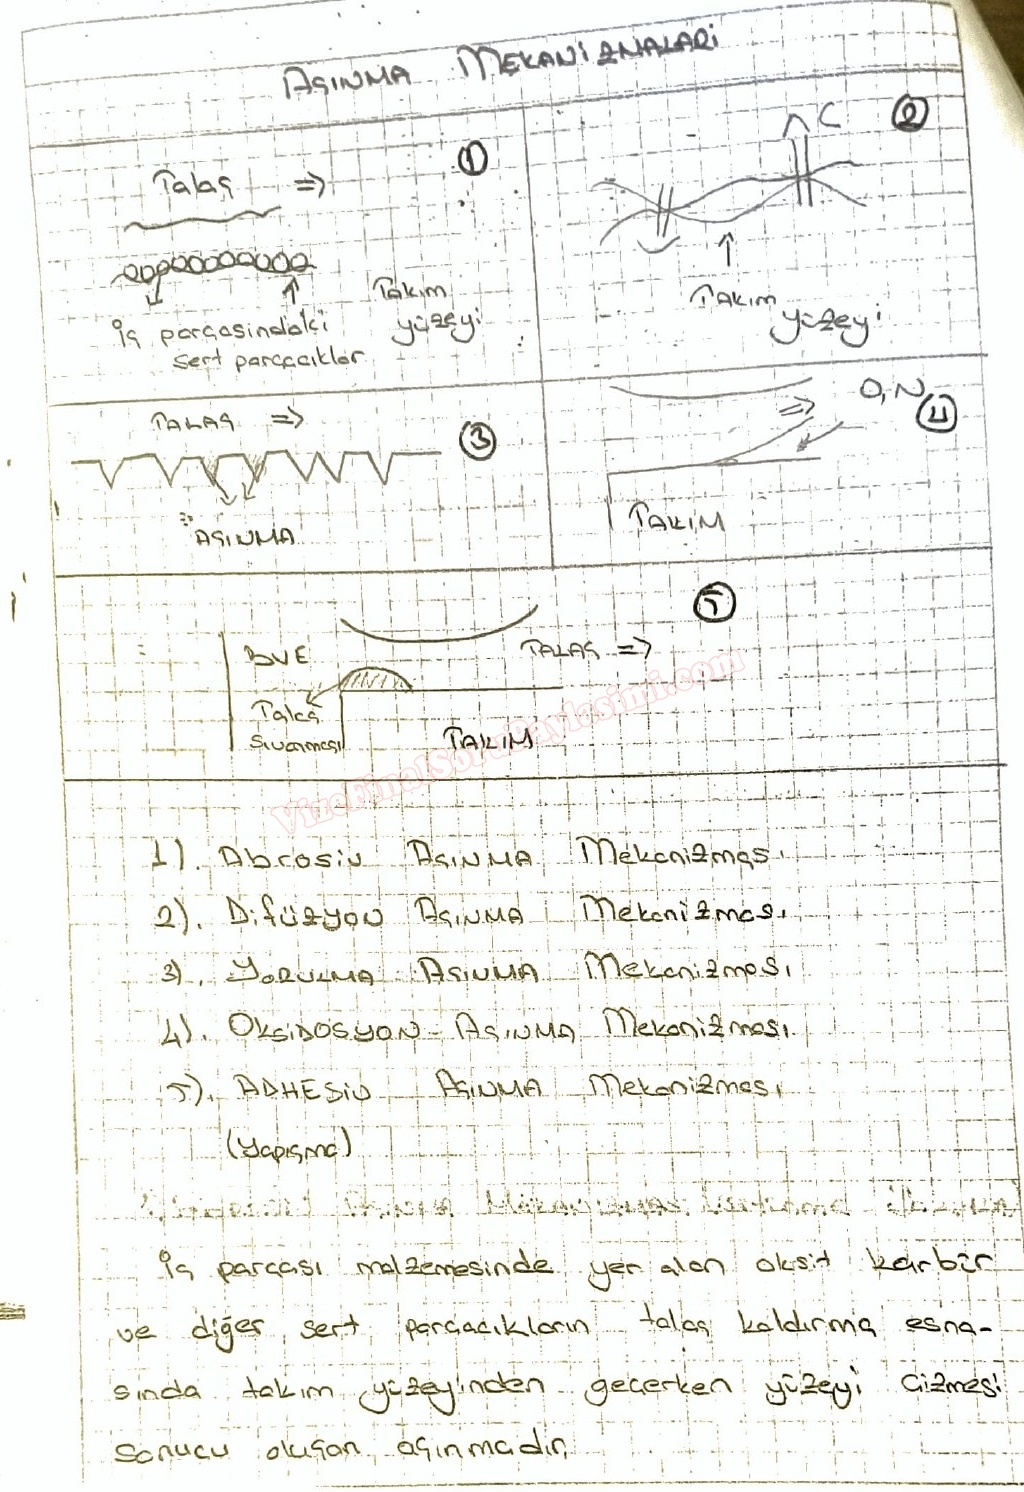 AŞINMA MEKANİZMALARI
①
Talaş ⇒
İş parçasındaki
sert parçacıklar
Takım
yüzeyi
②
C
Takım
yüzeyi
TALAŞ ⇒
③
AŞINMA
O,N
④
TAKIM
⑤
BUE
TALAŞ ⇒
Talaş
Sıvanması
TAKIM
VizeFinalSoruPaylasimi.com
1). Abrosiv AŞINMA Mekanizması
2). Difüzyon AŞINMA Mekanizması
3). YORULMA AŞINMA Mekanizması
4). OKSİDOSYON AŞINMA Mekanizması
5). ADHESİV AŞINMA Mekanizması
(Yapışma)
İş parçası malzemesinde yer alan oksit karbür
ve diğer sert parçacıkların talaş kaldırma esna-
sında takım yüzeyinden geçerken yüzeyi çizmesi
sonucu oluşan aşınmadır.